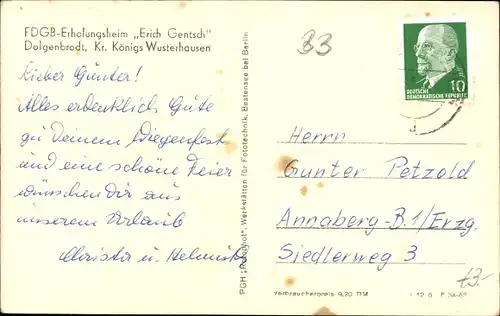 FDGB-Erholungsheim „Erich Gentsch"
Dolgenbrodt, Kr. Königs Wusterhausen
Lieber Günter!
Alles erdenklich Gute
zu Deinem Wiegenfest
und eine schöne Feier
wünschen Dir aus
unserem Urlaub
Christa u. Helmut
PGH Werkstätten für Fototechnik, Bestensee bei Berlin
33
10
DEUTSCHE
DEMOKRATISCHE REPUBLIK
Herrn
Gunter Petzold
Annaberg-B.1/Erzg.
Siedlerweg 3
£3.-
Verbraucherpreis 0,20 DM